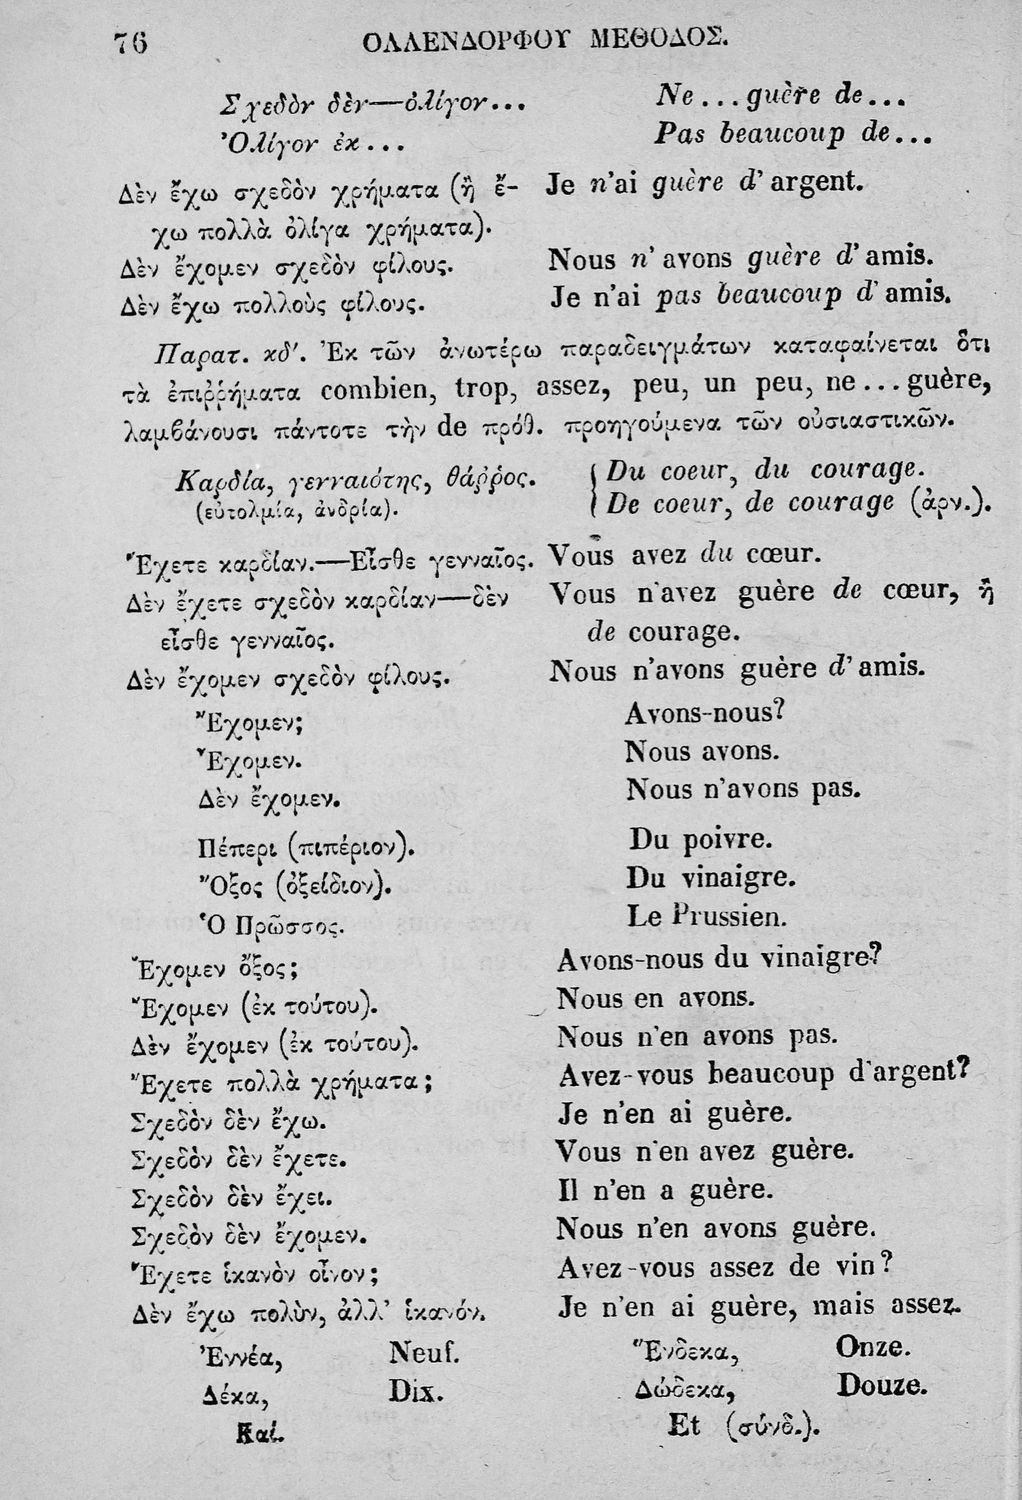 76 ΟΛΛΕΝΔΟΡΦΟΥ ΜΕΘΟΔΟΣ.
Σχεδὸν δὲν—ὀλίγον... Ne...guère de...
Ὀλίγον ἐκ... Pas beaucoup de...
Δὲν ἔχω σχεδὸν χρήματα (ἢ ἔ- Je n'ai guère d'argent.
χω πολλὰ ὀλίγα χρήματα).
Δὲν ἔχομεν σχεδὸν φίλους. Nous n'avons guère d'amis.
Δὲν ἔχω πολλοὺς φίλους. Je n'ai pas beaucoup d'amis.
Παρατ. κδ'. Ἐκ τῶν ἀνωτέρω παραδειγμάτων καταφαίνεται ὅτι
τὰ ἐπιῤῥήματα combien, trop, assez, peu, un peu, ne...guère,
λαμβάνουσι πάντοτε τὴν de πρόθ. προηγούμενα τῶν οὐσιαστικῶν.
Καρδία, γενναιότης, θάῤῥος. Du coeur, du courage.
(εὐτολμία, ἀνδρία). De coeur, de courage (ἀρν.).
Ἔχετε καρδίαν.—Εἶσθε γενναῖος. Vous avez du cœur.
Δὲν ἔχετε σχεδὸν καρδίαν—δὲν Vous n'avez guère de cœur, ἢ
εἶσθε γενναῖος. de courage.
Δὲν ἔχομεν σχεδὸν φίλους. Nous n'avons guère d'amis.
Ἔχομεν; Avons-nous?
Ἔχομεν. Nous avons.
Δὲν ἔχομεν. Nous n'avons pas.
Πέπερι (πιπέριον). Du poivre.
Ὄξος (ὀξείδιον). Du vinaigre.
Ὁ Πρῶσσος. Le Prussien.
Ἔχομεν ὄξος; Avons-nous du vinaigre?
Ἔχομεν (ἐκ τούτου). Nous en avons.
Δὲν ἔχομεν (ἐκ τούτου). Nous n'en avons pas.
Ἔχετε πολλὰ χρήματα; Avez-vous beaucoup d'argent?
Σχεδὸν δὲν ἔχω. Je n'en ai guère.
Σχεδὸν δὲν ἔχετε. Vous n'en avez guère.
Σχεδὸν δὲν ἔχει. Il n'en a guère.
Σχεδὸν δὲν ἔχομεν. Nous n'en avons guère.
Ἔχετε ἱκανὸν οἶνον; Avez-vous assez de vin?
Δὲν ἔχω πολὺν, ἀλλ' ἱκανόν. Je n'en ai guère, mais assez.
Ἐννέα, Neuf. Ἕνδεκα, Onze.
Δέκα, Dix. Δώδεκα, Douze.
Καί. Et (σύνδ.).